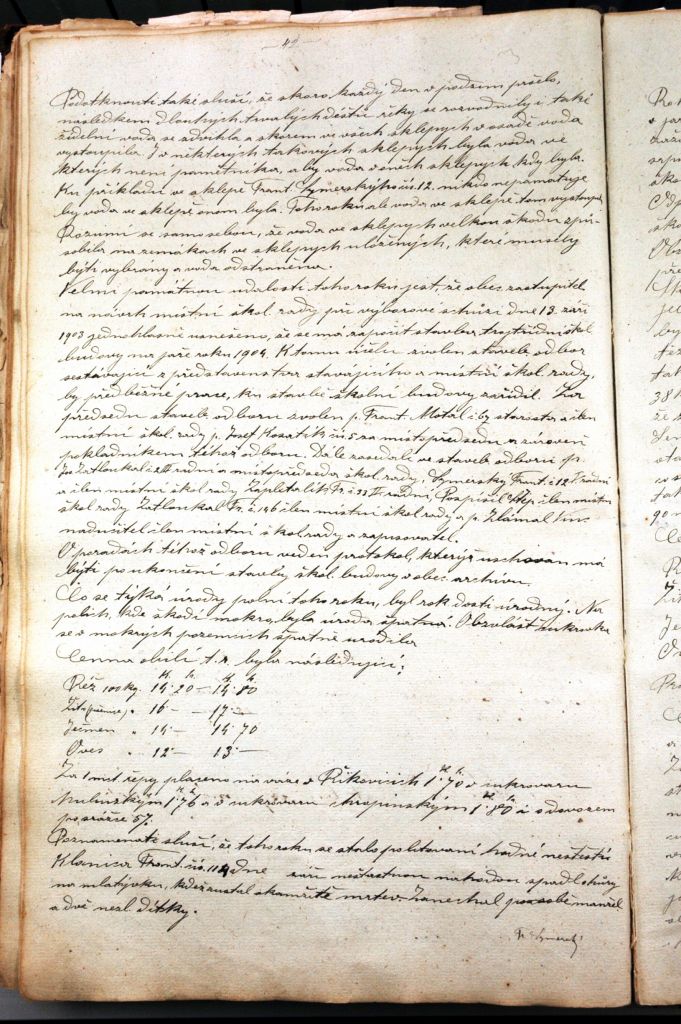 49
Podotknouti také sluší, že skoro každý den v podzim pršelo,
následkem dlouhých trvalých dešťů řeky se rozvodnily i také
židelní voda se zdvihla a skorem ve všech sklepích v osadě voda
vystoupila. I v některých takových sklepích byla voda ve
kterých není pamětníka, aby voda v oněch sklepích kdy byla.
Ku příkladu ve sklepě Frant. Symerskýho čís. 12. nikdo nepamatuje
by voda ve sklepě onom byla. Toho roku ale voda ve sklepě tom vystoupila
Rozumí se samo sebou, že voda ve sklepích velkou škodu způ-
sobila na zemákách ve sklepích uložených, které musely
býti vybrány a voda odstraněna.
Velmi památnou událostí toho roku jest, že obec. zastupitel.
na návrh místní škol. rady při výborové schůzi dne 13. září
1903 jednohlasně usneseno, že se má započít stavba trojtřídní škol.
budovy na jaře roku 1904. K tomu účelu zvolen staveb. odbor
sestávající z představenstva stávajícího a místní škol. rady,
by předběžné práce, ku stavbě školní budovy zařídil. Za
předsedu staveb. odboru zvolen p. Frant. Motal č. 64 starosta a člen
místní škol. rady p. Josef Kosatík čís. 5 za místopředsedu a zároveň
pokladníkem téhož odboru. Dále zasedali ve staveb. odboru p.
Jos. Zatloukal č. 2 II radní a místopředseda škol. rady, Symerský Frant. č. 12 I radní
a člen místní škol. rady Zapletalík Fr. č. 33 III radní, Pospíšil Štěp. člen místní
škol. rady Zatloukal Fr. č. 146 člen místní škol. rady a p. Zlámal Vinc.
nadučitel člen místní škol. rady a zapisovatel.
O poradách téhož odboru veden protokol, kterýž uschován má
býti po ukončení stavby škol. budovy v obec. archivu.
Co se týká úrody polní toho roku, byl rok dosti úrodný. Na
polích, kde škodí mokro, byla úroda špatná. Obzvlášť cukrovka
se v mokrých pozemcích špatně urodila
Cenna obilí t. r. byla následující:
Réž 100 kg. 14·20 — 14·80
Žita (pšenice) " 16 — 17·—
Ječmen " 14·— 14·70
Oves " 12·— 13·—
Za 1 mt. řepy placeno na váze v Říkovicích 1·70 v cukrovaru
Mulínským 1·76 a v cukrovaru chropinským 1·80 i s dovozem
po srážce 5%.
Poznamenati sluší, že toho roku se stalo politování hodné neštěstí
Klanica Frant. čís. 114 dne září nešťastnou náhodou spadl shůry
na mlatýoku, kdež zůstal okamžitě mrtev. Zanechal po sobě manžel.
a dvě nezl. dítky.
Fr. Symerský